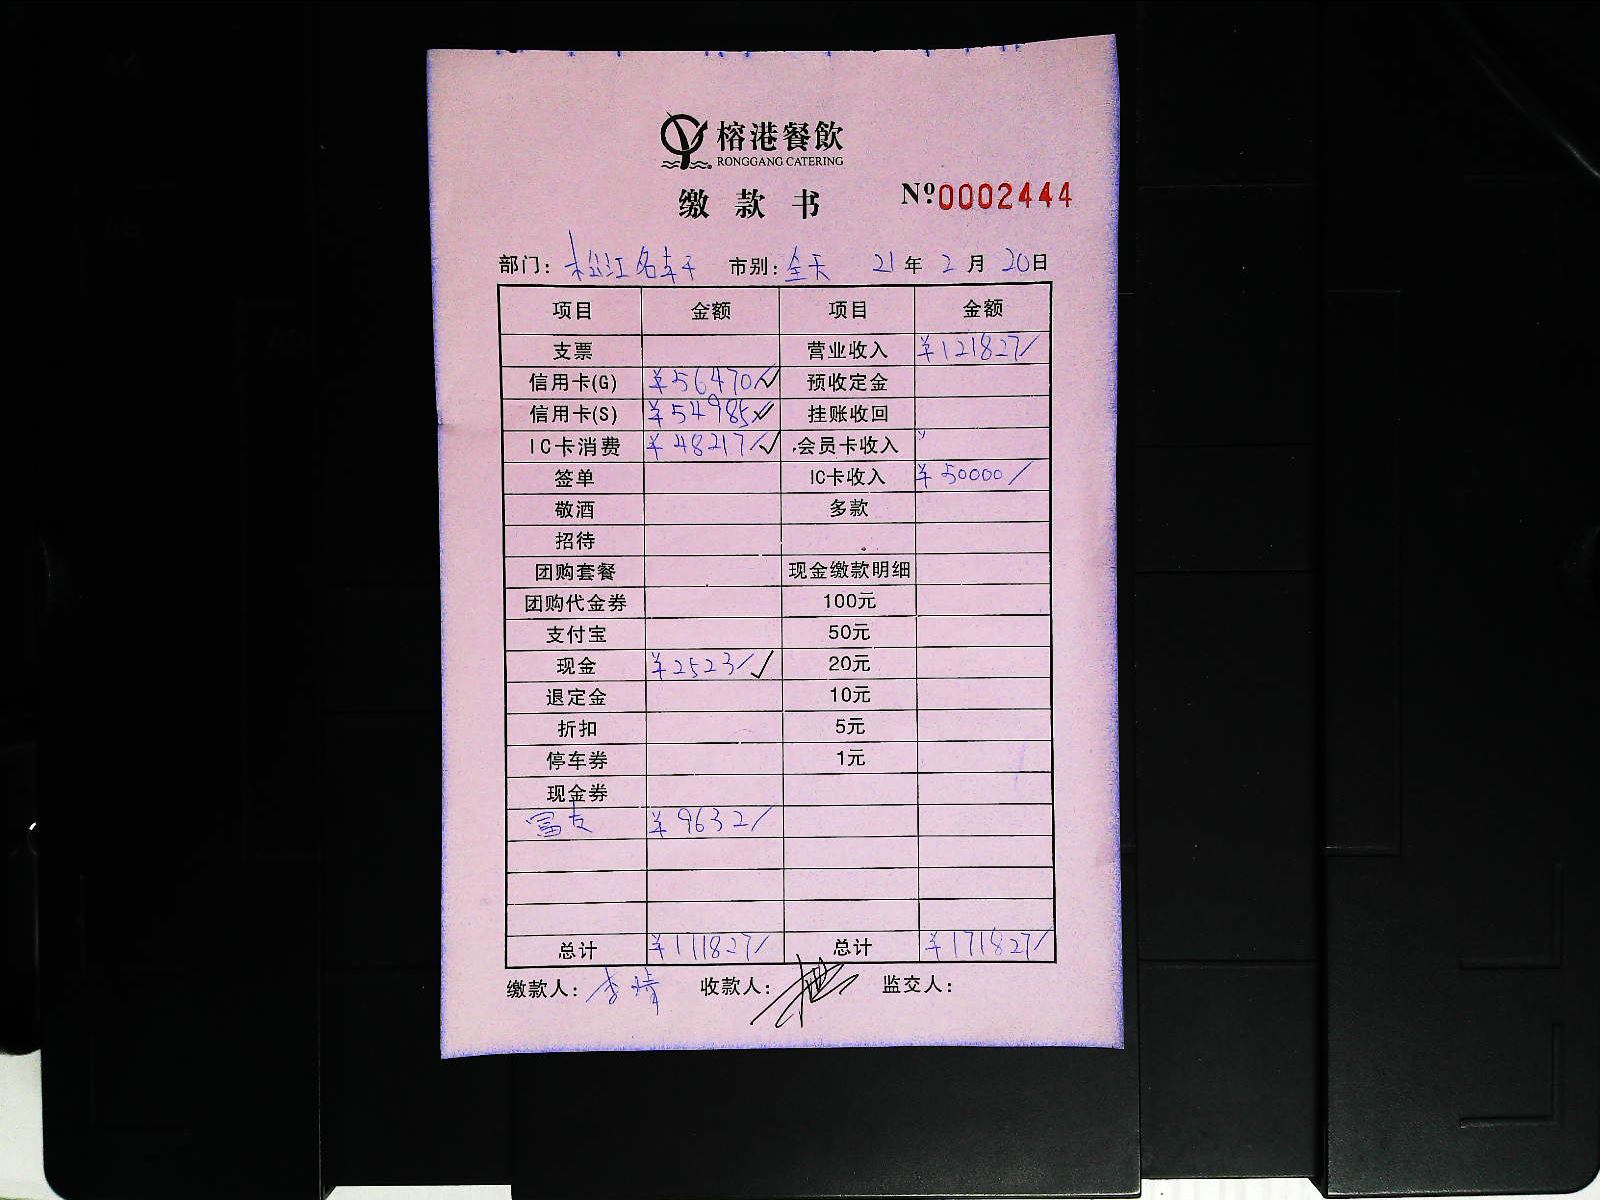 榕港餐飲
RONGGANG CATERING
缴款书 Nº0002444
部门: 松江名轩 市别: 全天 21年2月20日
项目 金额 项目 金额
支票 营业收入 ¥121827/
信用卡(G) ¥56470/ 预收定金
信用卡(S) ¥54985/ 挂账收回
IC卡消费 ¥48217/ 会员卡收入
签单 IC卡收入 ¥50000/
敬酒 多款
招待
团购套餐 现金缴款明细
团购代金券 100元
支付宝 50元
现金 ¥2523/ 20元
退定金 10元
折扣 5元
停车券 1元
现金券
富友 ¥9632/
总计 ¥171827/ 总计 ¥171827/
缴款人: 李婧 收款人: 监交人: